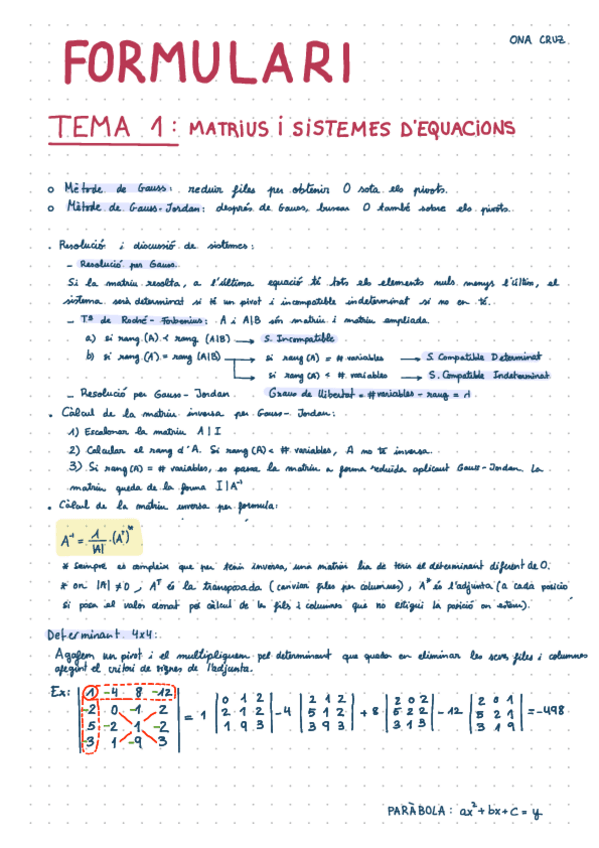 ONA CRUZ
FORMULARI
TEMA 1: MATRIUS i SISTEMES D'EQUACIONS
o Mètode de Gauss: reduir files per obtenir 0 sota els pivots.
o Mètode de Gauss-Jordan: després de Gauss, buscar 0 també sobre els pivots.
. Resolució i discussió de sistemes:
- Resolució per Gauss.
Si la matriu resolta, a l'última equació té tots els elements nuls menys l'últim, el
sistema serà determinat si té un pivot i incompatible indeterminat si no en té.
- Tª de Rouché-Frobenius: A i A|B són matriu i matriu ampliada.
a) si rang (A) < rang (A|B) → S. Incompatible
b) si rang (A) = rang (A|B) → si rang (A) = # variables → S. Compatible Determinat
si rang (A) < # variables → S. Compatible Indeterminat
- Resolució per Gauss-Jordan. Graus de llibertat = # variables - rang = r
. Càlcul de la matriu inversa per Gauss-Jordan:
1) Escalonar la matriu A | I
2) Calcular el rang d'A. Si rang (A) < # variables, A no té inversa.
3) Si rang (A) = # variables, es passa la matriu a forma reduïda aplicant Gauss-Jordan. La
matriu queda de la forma I | A⁻¹
. Càlcul de la matriu inversa per formula:
A⁻¹ = 1/|A| · (Aᵀ)*
* Sempre es compleix que per tenir inversa, una matriu ha de tenir el determinant diferent de 0.
* on |A| ≠ 0, Aᵀ és la transposada (canviar files per columnes), A* és l'adjunta (a cada posició
si posa el valor donat pel càlcul de la fila i columnes que no estigui la posició on estem).
Determinant 4x4:
Agafem un pivot i el multipliquem pel determinant que queda en eliminar les seves files i columnes
afegint el criteri de signes de l'adjunta.
Ex: | 1 -4 8 -12 |
| -2 0 -1 2 | = 1 | 0 1 2 | -4 | 2 1 2 | + 8 | 2 0 2 | - 12 | 2 0 1 | = -498
| 5 -2 1 -2 | | 2 1 2 | | 5 1 2 | | 5 2 2 | | 5 2 1 |
| -3 1 -9 3 | | 1 9 3 | | 3 9 3 | | 3 1 3 | | 3 1 9 |
PARÀBOLA: ax² + bx + c = y